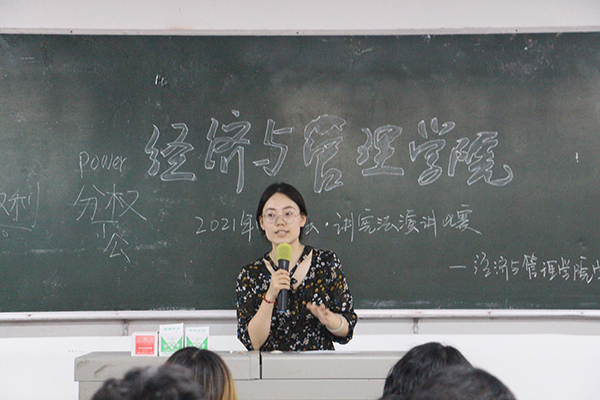 经济与管理学院
power
分权
公
利
2021年 ·讲宪法演讲比赛
—经济与管理学院学